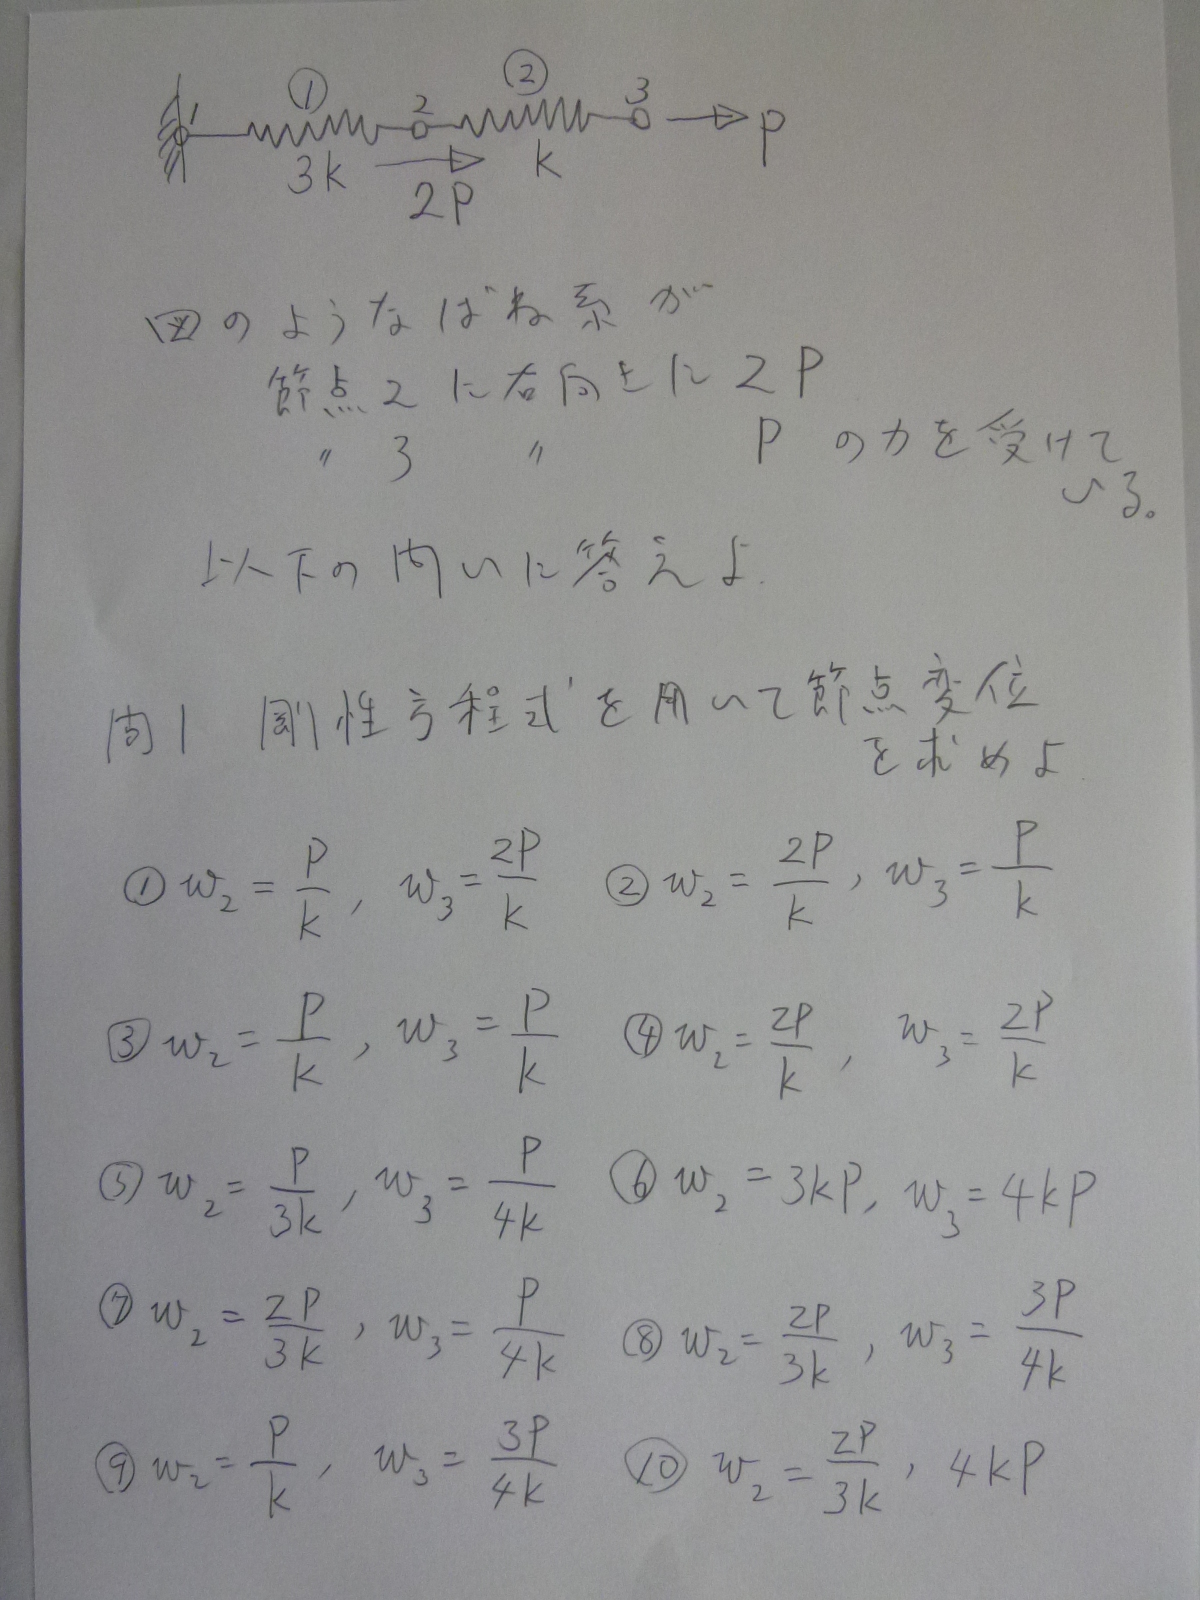 ① ②
1 2 3 P
3k k
2P
図のようなばね系が
節点2に右向きに2P
〃 3 〃 Pの力を受けて
いる。
以下の問いに答えよ.
問1 剛性方程式を用いて節点変位
を求めよ.
① w₂ = P/k, w₃ = 2P/k ② w₂ = 2P/k, w₃ = P/k
③ w₂ = P/k, w₃ = P/k ④ w₂ = 2P/k, w₃ = 2P/k
⑤ w₂ = P/3k, w₃ = P/4k ⑥ w₂ = 3kP, w₃ = 4kP
⑦ w₂ = 2P/3k, w₃ = P/4k ⑧ w₂ = 2P/3k, w₃ = 3P/4k
⑨ w₂ = P/k, w₃ = 3P/4k ⑩ w₂ = 2P/3k, 4kP